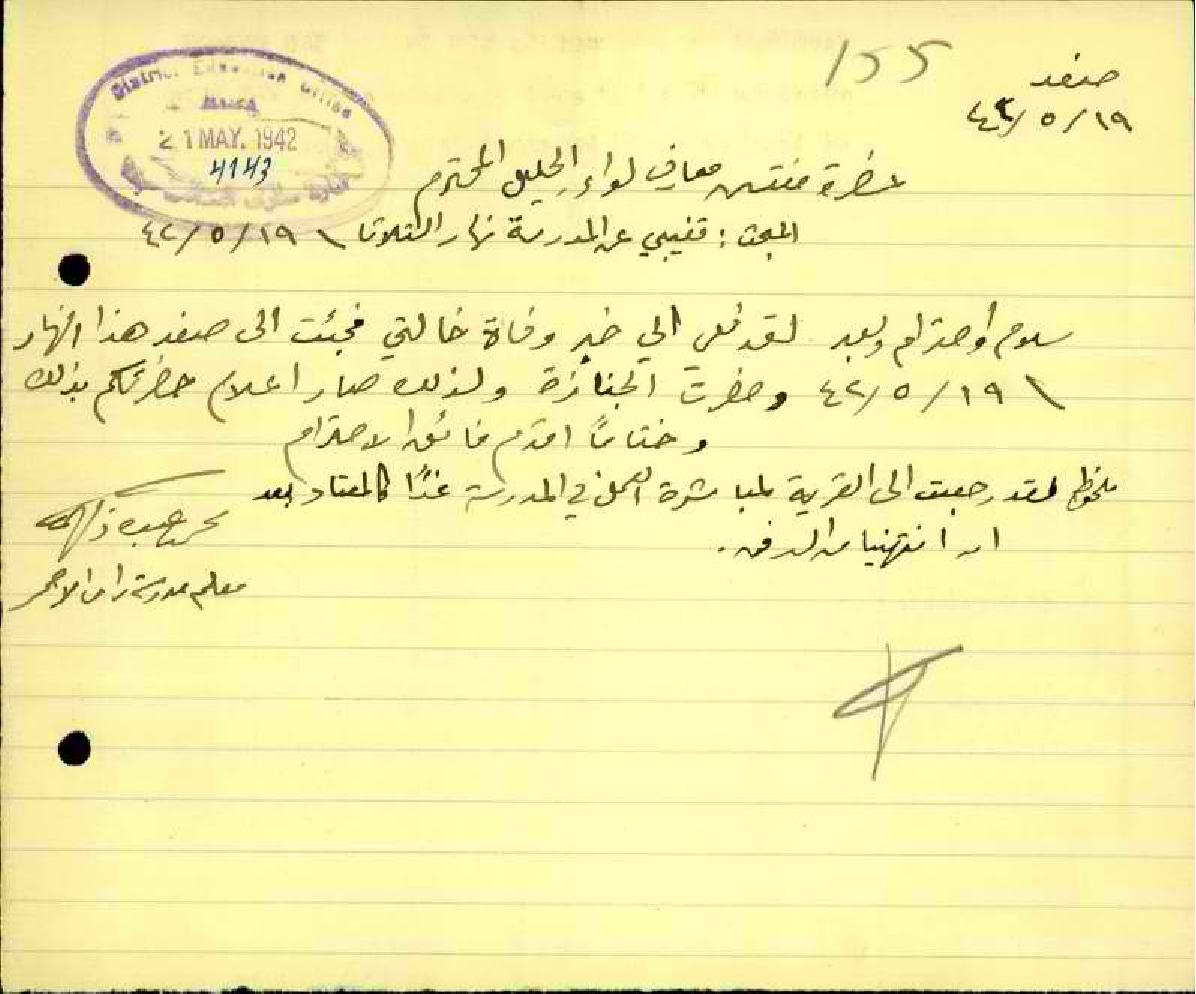 155
صفد
١٩/٥/٤٢
District Education Office
21 MAY. 1942
4143
حضرة مفتش معارف لواء الجليل المحترم
المبحث : تغيبي عن المدرسة نهار الثلاثا \ ١٩/٥/٤٢
سلام واحترام وبعد لقد نمى الي خبر وفاة خالتي فجئت الى صفد هذا النهار
\ ١٩/٥/٤٢ وحضرت الجنازة ولذلك صار اعلام حضرتكم بذلك
وختاماً اقدم فائق الاحترام
ملحوظة لقد رجعت الى القرية لمباشرة العمل في المدرسة غداً كالمعتاد بعد
ان انتهينا من الدفن .
معلم مدرسة راس الاحمر